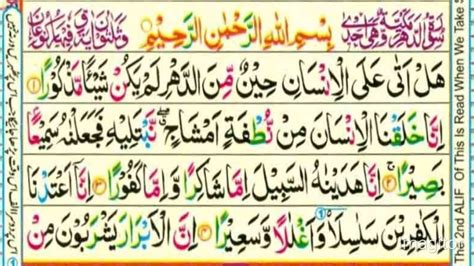 بِسْمِ اللّٰهِ الرَّحْمٰنِ الرَّحِيْمِ
هَلْ اَتٰى عَلَى الْاِنْسَانِ حِيْنٌ مِّنَ الدَّهْرِ لَمْ يَكُنْ شَيْـًٔا مَّذْكُوْرًا ①
اِنَّا خَلَقْنَا الْاِنْسَانَ مِنْ نُّطْفَةٍ اَمْشَاجٍ ۖ نَّبْتَلِيْهِ فَجَعَلْنٰهُ سَمِيْعًۢا
بَصِيْرًا ② اِنَّا هَدَيْنٰهُ السَّبِيْلَ اِمَّا شَاكِرًا وَّ اِمَّا كَفُوْرًا ③ اِنَّاۤ اَعْتَدْنَا
لِلْكٰفِرِيْنَ سَلٰسِلَا۟ وَ اَغْلٰلًا وَّ سَعِيْرًا ④ اِنَّ الْاَبْرَارَ يَشْرَبُوْنَ مِنْ
The 2nd ALIF Of This Is Read When We Take S